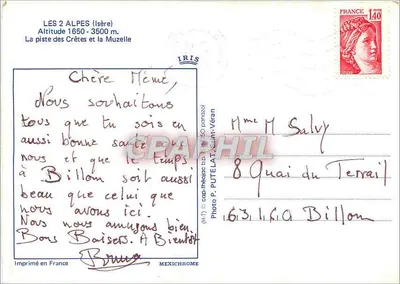 LES 2 ALPES (Isère)
Altitude 1650 - 3500 m.
La piste des Crêtes et la Muzelle
IRIS
FRANCE
1,40
Chère Mémé,
Nous souhaitons
tous que tu sois en
aussi bonne santé que
nous et que le temps
à Billom soit aussi
beau que celui que
nous avons ici.
Nous nous amusons bien.
Bons Baisers. A Bientôt
Bruno
Mme M Salvy
8 Quai du Terrail
63160 Billom
Photo P. PUTELAT, Saint-Véran
Imprimé en France
MEXICHROME